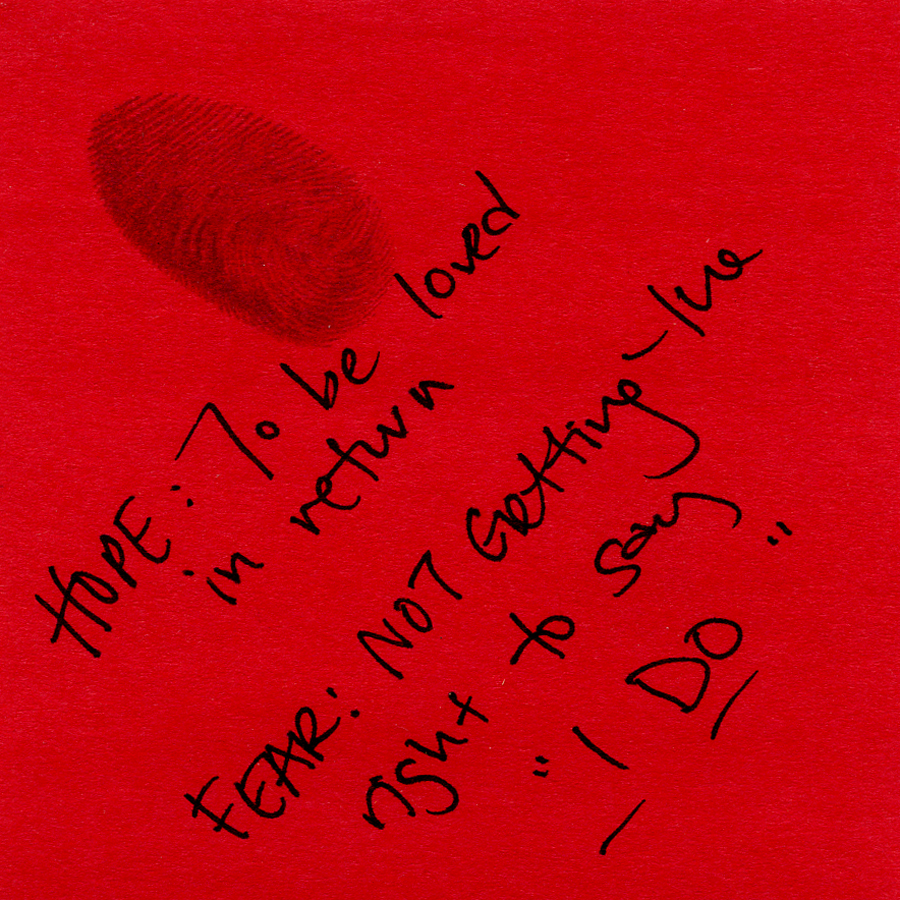 HOPE: To be loved
in return
FEAR: NOT Getting the
right to say
"I DO"